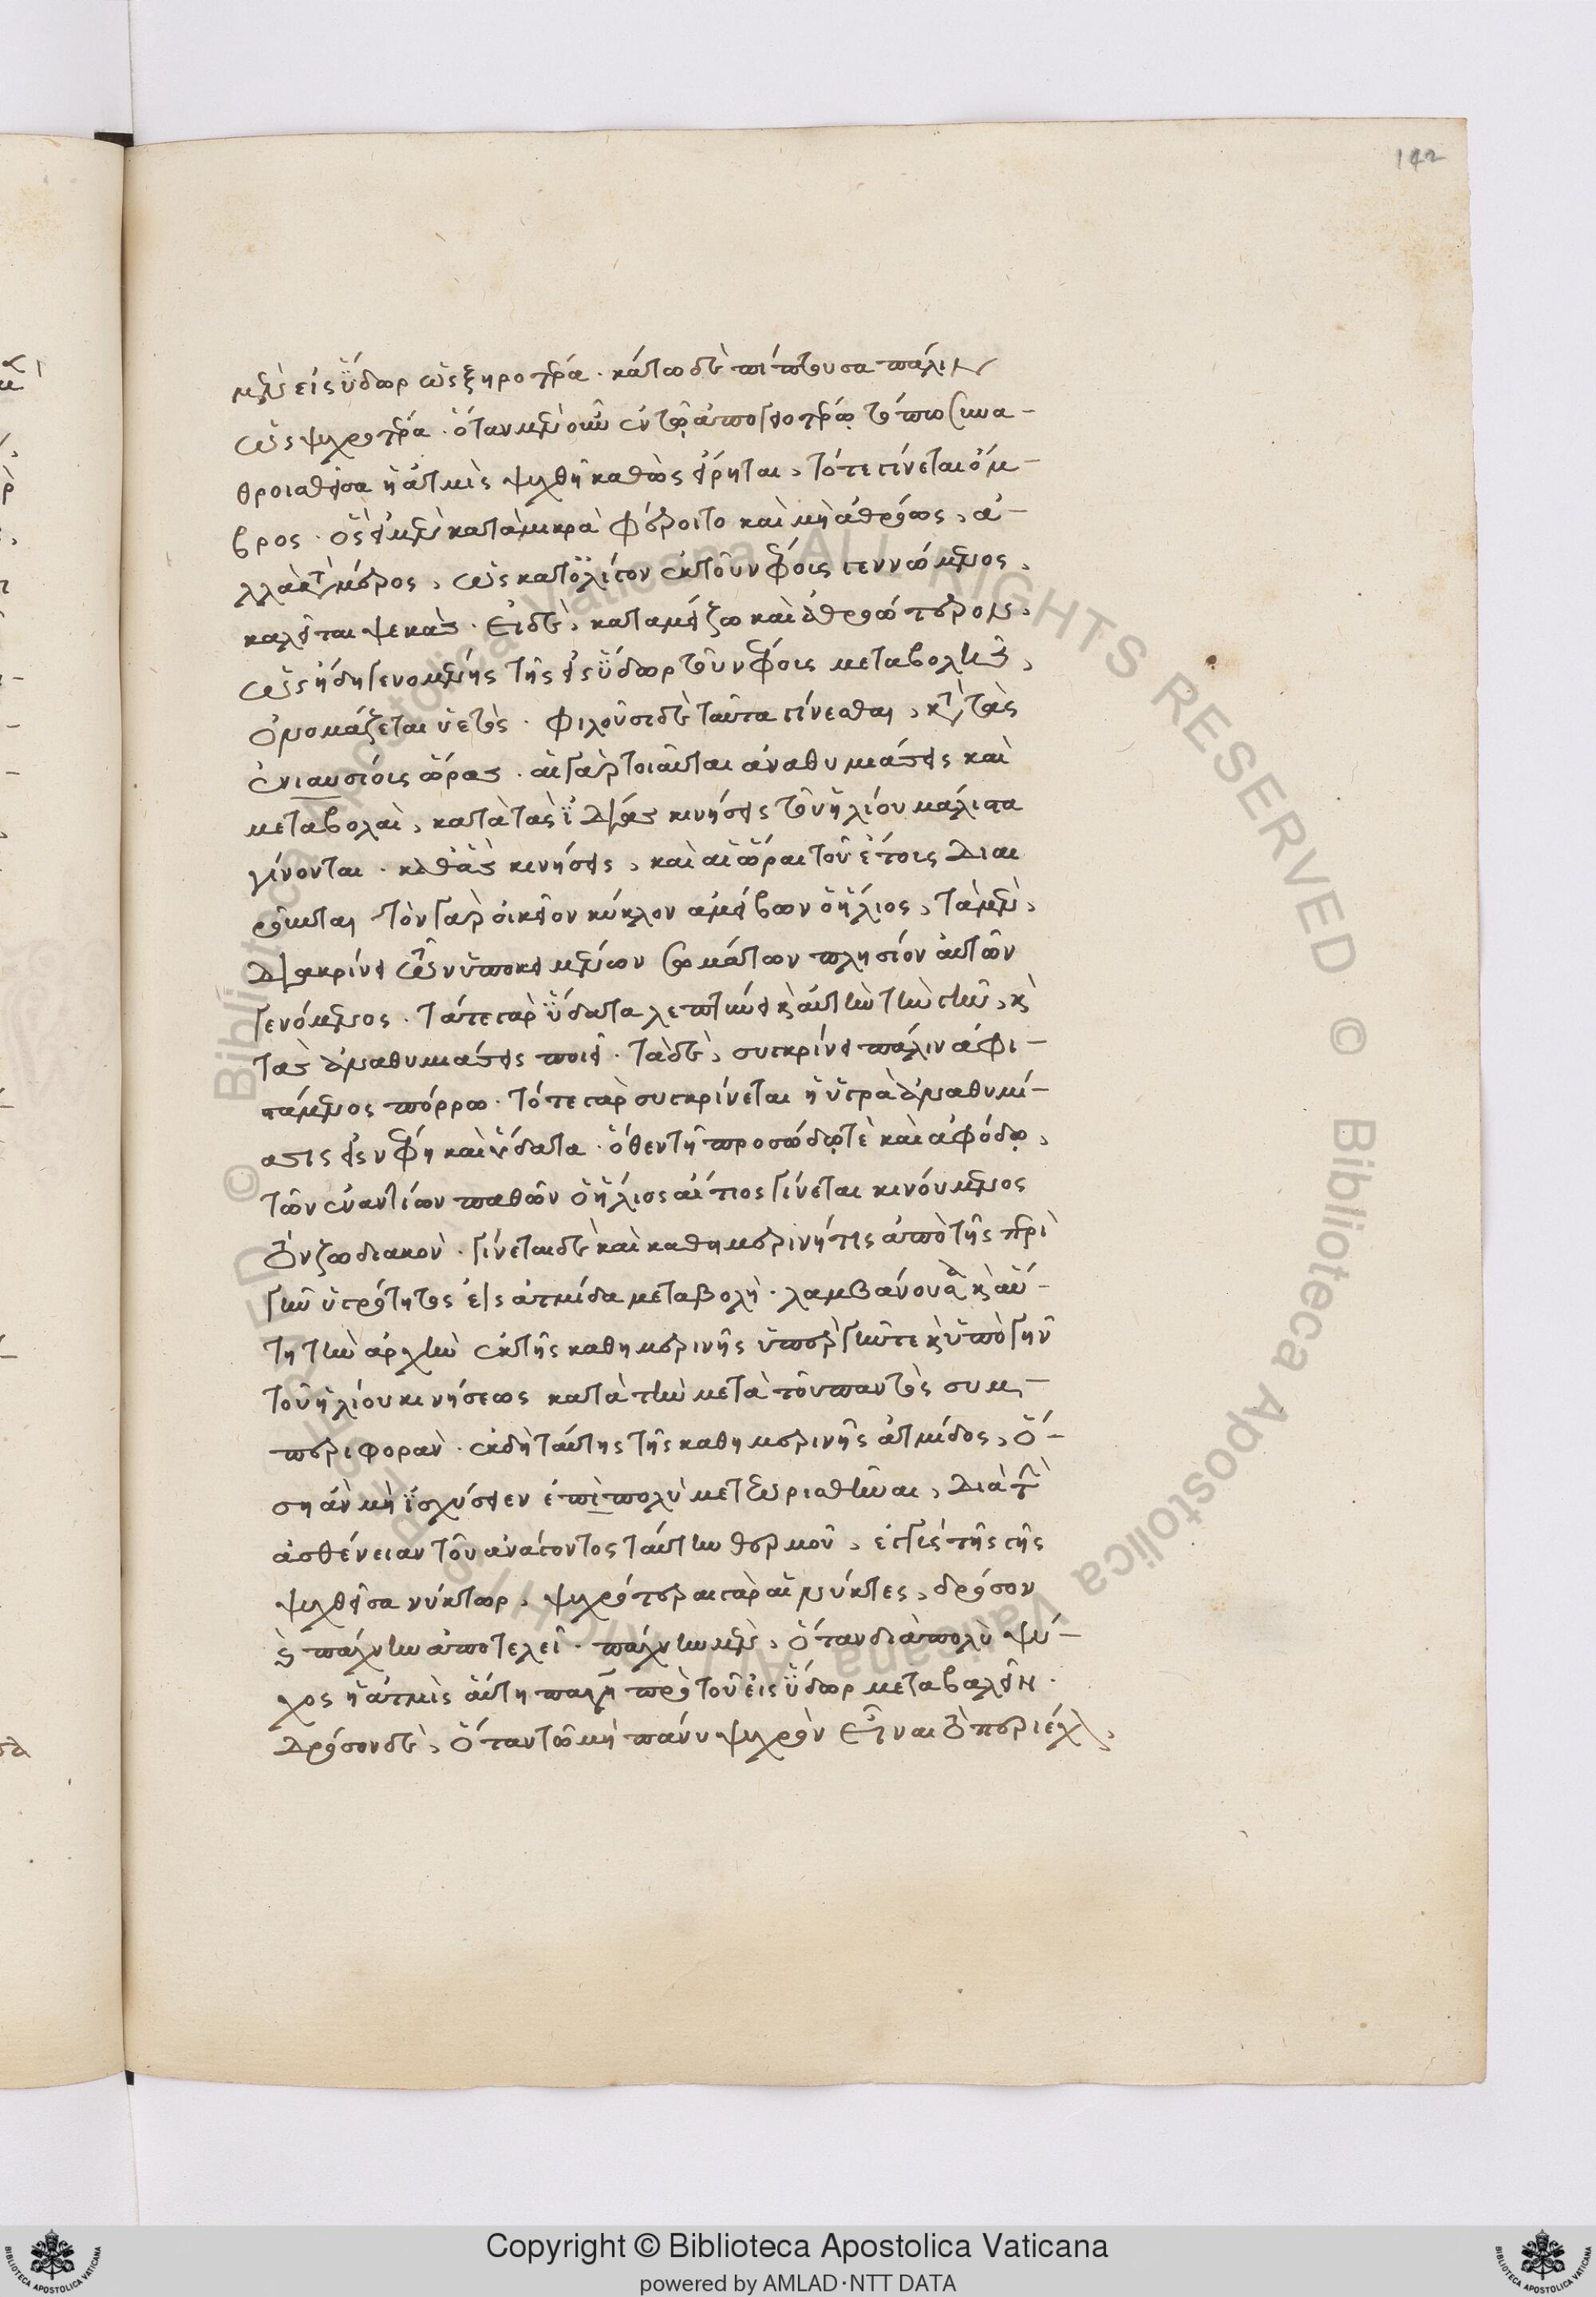 142
μὲν εἰς ὕδωρ ὡς ξηροτέρα. κάτω δὲ πίπτουσα πάλιν
ὡς ψυχροτέρα. ὅταν μὲν οὖν ἐν τῷ ἀπογειοτέρῳ τόπῳ συνα-
θροισθεῖσα ἡ ἀτμὶς ψυχθῇ καθὼς εἴρηται, τότε γίνεται ὄμ-
βρος. ὃς εἰ μὲν κατὰ μικρὰ φέροιτο καὶ μὴ ἀθρόως, ἀ-
λλὰ κατὰ μέρος, ὡς κατ' ὀλίγον ἐκ τοῦ νέφους γεννώμενος,
καλεῖται ψεκάς. εἰ δὲ, κατὰ μείζω καὶ ἀθροώτερος,
ὡς ἤδη γενομένης τῆς εἰς ὕδωρ τοῦ νέφους μεταβολῆς,
ὀνομάζεται ὑετός. φιλοῦσι δὲ ταῦτα γίνεσθαι, κατὰ τὰς
ἐνιαυσίους ὥρας. αἱ γὰρ τοιαῦται ἀναθυμιάσεις καὶ
μεταβολαὶ, κατὰ τὰς ἰδίας κινήσεις τοῦ ἡλίου μάλιστα
γίνονται. καθ' ἃς κινήσεις, καὶ αἱ ὧραι τοῦ ἔτους διαι
ροῦνται τὸν γὰρ οἰκεῖον κύκλον ἀμείβων ὁ ἥλιος, τὰ μὲν,
διακρίνει τῶν ὑποκειμένων σωμάτων πλησίον αὐτῶν
γενόμενος. τά τε γὰρ ὕδατα λεπτύνει κ αὐτὴν τὴν γῆν, κ
τὰς ἀναθυμιάσεις ποιεῖ. τὰ δὲ, συγκρίνει πάλιν ἀφι-
στάμενος πόρρω. τότε γὰρ συγκρίνεται ἡ ὑγρὰ ἀναθυμί-
ασις εἰς νέφη καὶ ὕδατα. ὅθεν τῇ προσόδῳ τὲ καὶ ἀφόδῳ,
τῶν ἐναντίων παθῶν ὁ ἥλιος αἴτιος γίνεται κινούμενος
τὸν ζωδιακόν. γίνεται δὲ καὶ καθημερινή τις ἀπὸ τῆς περὶ
γῆν ὑγρότητος εἰς ἀτμίδα μεταβολή. λαμβάνουσα κ αὕ-
τη τὴν ἀρχὴν ἐκ τῆς καθημερινῆς ὑπὲρ γῆν τε κ ὑπὸ γῆν
τοῦ ἡλίου κινήσεως κατὰ τὴν μετὰ τοῦ παντὸς συμ-
περιφοράν. ἐκ δὴ ταύτης τῆς καθημερινῆς ἀτμίδος, ὅ-
ση ἂν μὴ ἰσχύσειεν ἐπὶ πολὺ μετεωρισθῆναι, διὰ τὴν
ἀσθένειαν τοῦ ἀνάγοντος ταύτην θερμοῦ, ἐγγὺς τῆς γῆς
ψυχθεῖσα νύκτωρ, ψυχρότεραι γὰρ αἱ νύκτες, δρόσον
κ πάχνην ἀποτελεῖ. πάχνην μὲν, ὅταν διὰ πολὺ ψύ-
χος ἡ ἀτμὶς αὕτη παγῇ πρὸ τοῦ εἰς ὕδωρ μεταβαλεῖν.
δρόσον δὲ, ὅταν τῷ μὴ πάνυ ψυχρὸν εἶναι τὸ περιέχον,
Copyright © Biblioteca Apostolica Vaticana
powered by AMLAD·NTT DATA